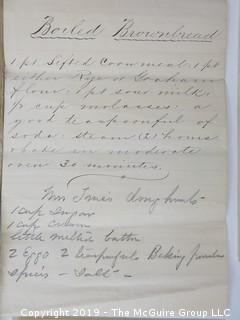 Boiled Brownbread
1 pt. Sifted Cornmeal: 1 pt
either Rye or Graham
flour: 1 pt sour milk:
½ cup molasses: a
good teaspoonful of
soda: steam (2) hours
& bake in moderate
oven 30 minutes.
Mrs Doughnuts
1 cup Sugar
1 cup Cream
little melted butter
2 Eggs 2 teaspoonfuls Baking Powder
Spices - Salt -
Copyright 2019 - The McGuire Group LLC